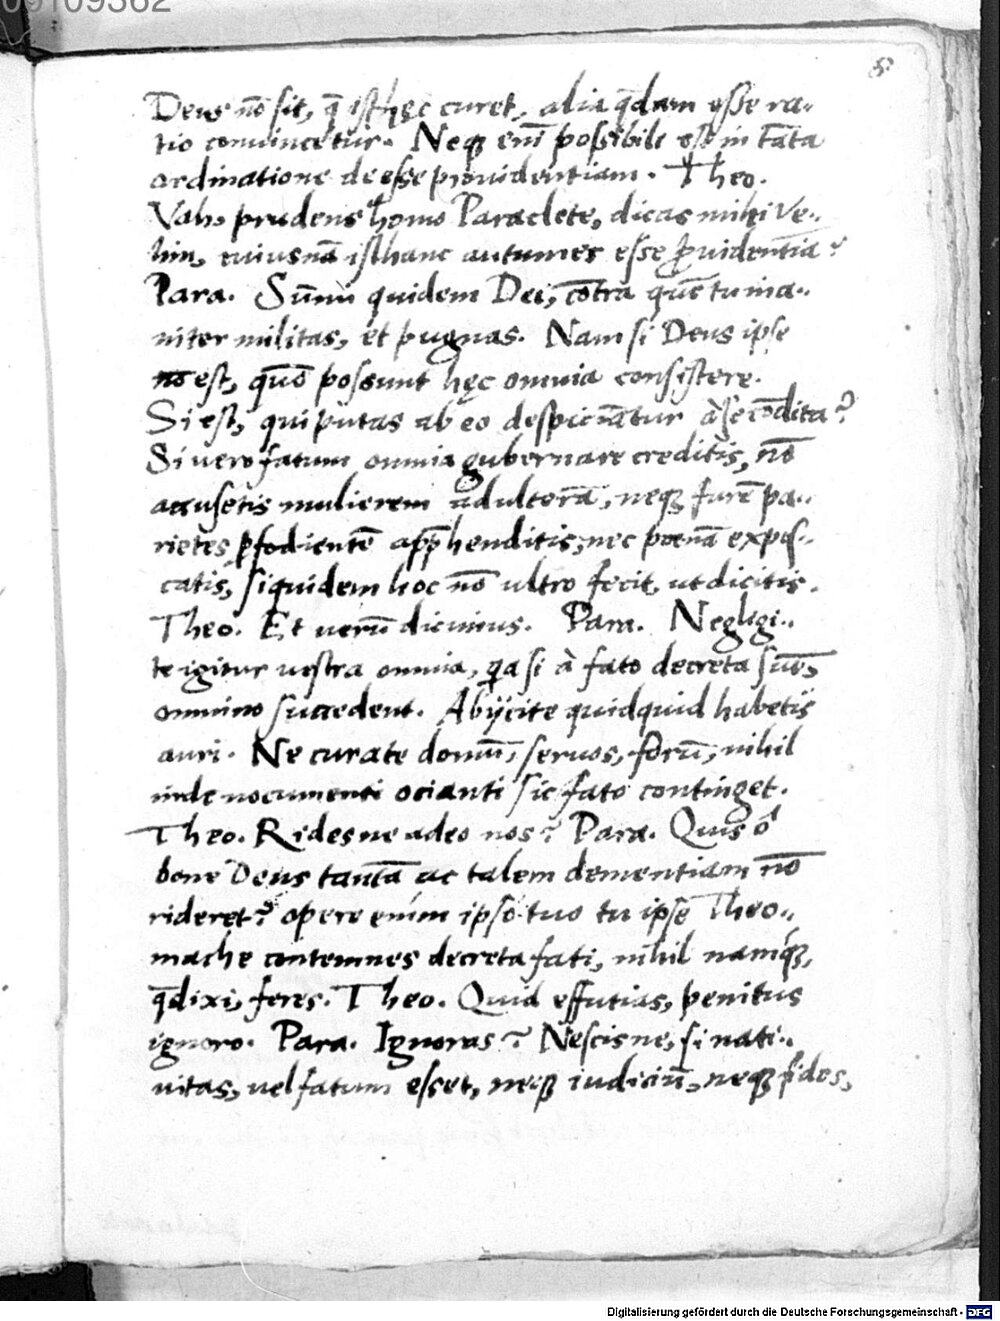 8
Deus nō sit, q̄ isthęc curet, alia q̄dam esse ra-
tio convincetur. Neqꝫ enī possibile est in tāta
ordinatione deesse providentiam. Theo.
Vah, prudens homo Paraclete, dicas mihi ve-
lim, cuiusnā isthanc autumes esse ꝓvidentiā?
Para. Sūmi quidem Dei, cōtra quē tu ina-
niter militas, et pugnas. Nam si Deus ipse
nō est, quō possunt hęc omnia consistere.
Si est, qui putas ab eo despiciātur à se cōdita?
Si vero fatum omnia gubernare creditis, nō
accusetis mulierem adulterā, neqꝫ furē pa-
rietes ꝑfodientē apphenditis, nec poenā expos-
catis, siquidem hoc nō ultro fecit, ut dicitis.
Theo. Et verū dicimus. Para. Negligi-
te igitur vestra omnia, qa si à fato decreta sūt,
omnino succedent. Abijcite quidquid habetis
auri. Ne curate domū, servos, forū, nihil
inde nocumenti ocianti sic fato continget.
Theo. Ridesne adeo nos? Para. Quis ō
bone Deus tantā ac talem dementiam nō
rideret? opere enim ipso tuo tu ipse Theo-
mache contemnes decreta fati, nihil namqꝫ,
qd dixi, feres. Theo. Quid effutias, penitus
ignoro. Para. Ignoras? Nescisne, si nati-
vitas, vel fatum esset, neqꝫ iudiciū, neqꝫ fides,
Digitalisierung gefördert durch die Deutsche Forschungsgemeinschaft - DFG